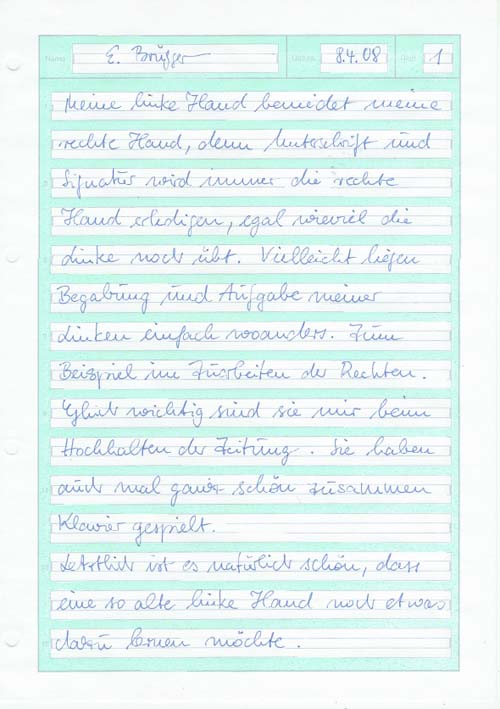 Name E. Brügger Datum 8.4.08 Blatt 1
Meine linke Hand beneidet meine
rechte Hand, denn Unterschrift und
Signatur wird immer die rechte
Hand erledigen, egal wieviel die
Linke noch übt. Vielleicht liegen
Begabung und Aufgabe meiner
Linken einfach woanders. Zum
Beispiel im Zuarbeiten der Rechten.
Gleich wichtig sind sie mir beim
Hochhalten der Zeitung. Sie haben
auch mal ganz schön zusammen
Klavier gespielt.
Letztlich ist es natürlich schön, dass
eine so alte linke Hand noch etwas
dazu lernen möchte.